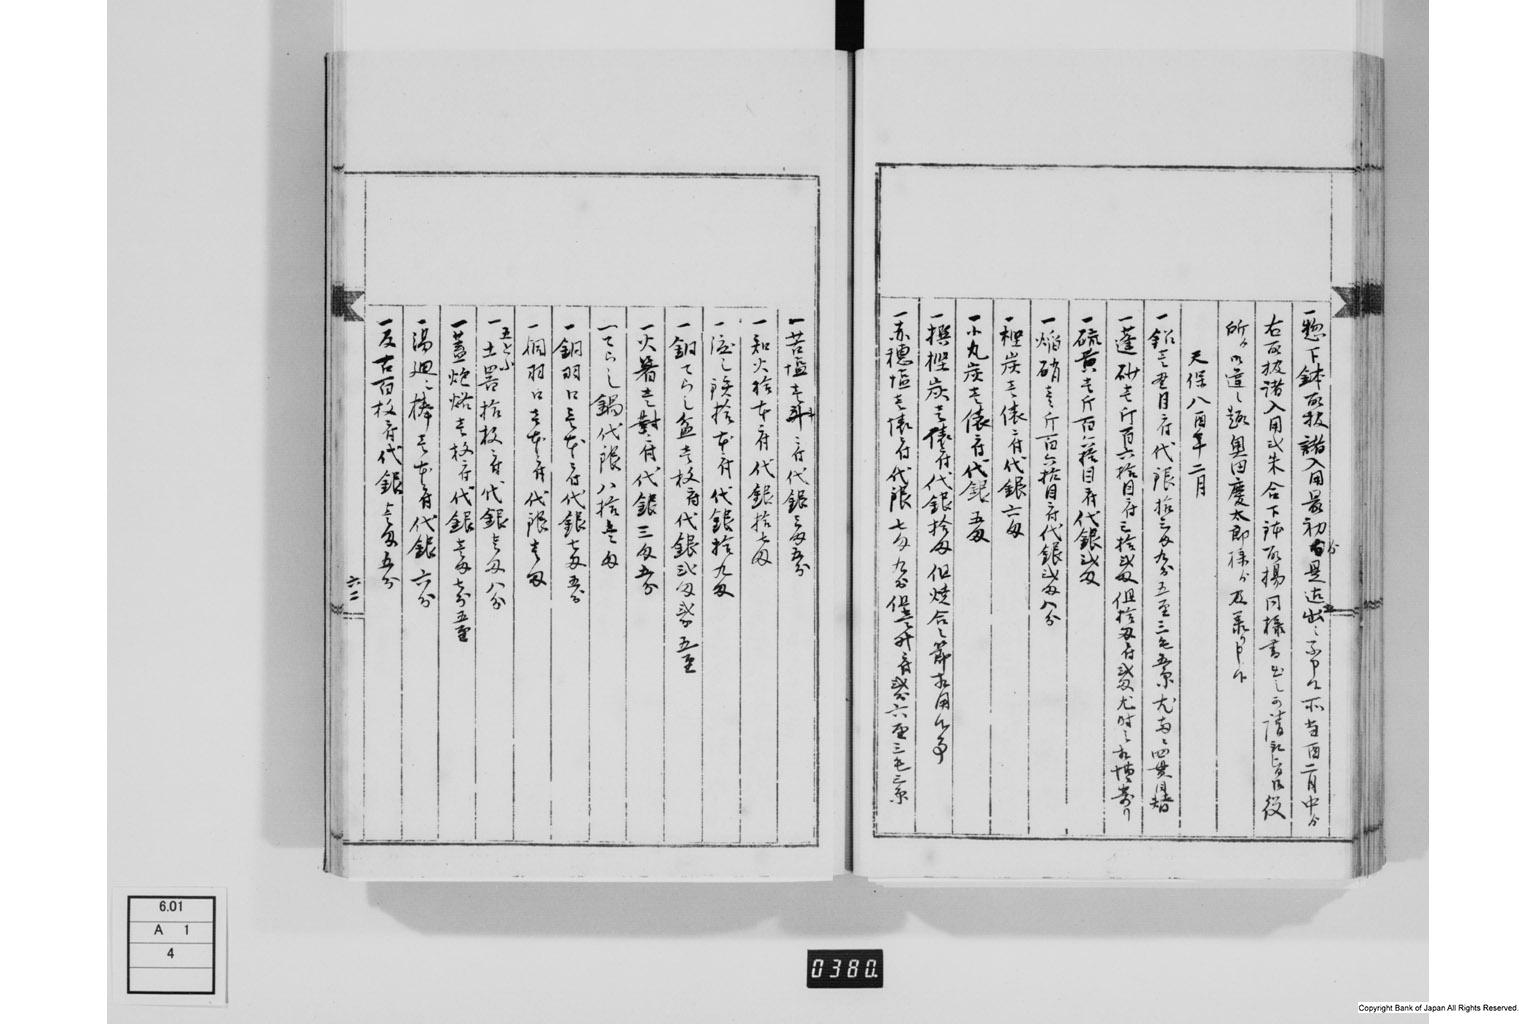 一惣下鉢取扱諸入用最初ゟ是迄出し不申候所当酉二月中ゟ
右取扱諸入用弐朱合下鉢取揚同様書出し可請取旨取役
所ゟ申遣し趣奥田慶太郎様ゟ及承り申候
天保八酉年二月
一鉛壱〆目ニ付代銀拾三匁九分五厘三毛五糸
一蓬砂壱斤百六拾目ニ付三拾弐匁但拾匁ニ付弐匁尤時之相場
一硫黄壱斤 代銀弐匁
一焔硝壱斤百六拾目ニ付代銀弐匁八分
一樫炭壱俵ニ付代銀六匁
一小丸炭壱俵ニ付代銀五匁
一撰樫炭壱俵ニ付代銀拾匁但焼合之節相用候事
一赤穂塩壱俵ニ付代銀七匁九分但壱升ニ付弐分六厘三毛三糸
一苦塩壱斗ニ付代銀三匁五分
一和火拾本ニ付代銀拾七匁
拾本ニ付代銀拾九匁
一銅てらし盆壱枚ニ付代銀弐匁弐分五厘
一火箸壱対ニ付代銀三匁五分
一てらし鍋代銀八拾壱匁
一銅羽口壱本ニ付代銀七匁五分
羽口壱本ニ付代銀壱匁
一土器拾枚ニ付代銀壱匁八分
一蓋炮烙壱枚ニ付代銀壱匁七分五厘
一湯廻し棒壱本ニ付代銀六分
一反古百枚ニ付代銀壱匁五分
六二
6.01
A 1
4
0380.
Copyright Bank of Japan All Rights Reserved.